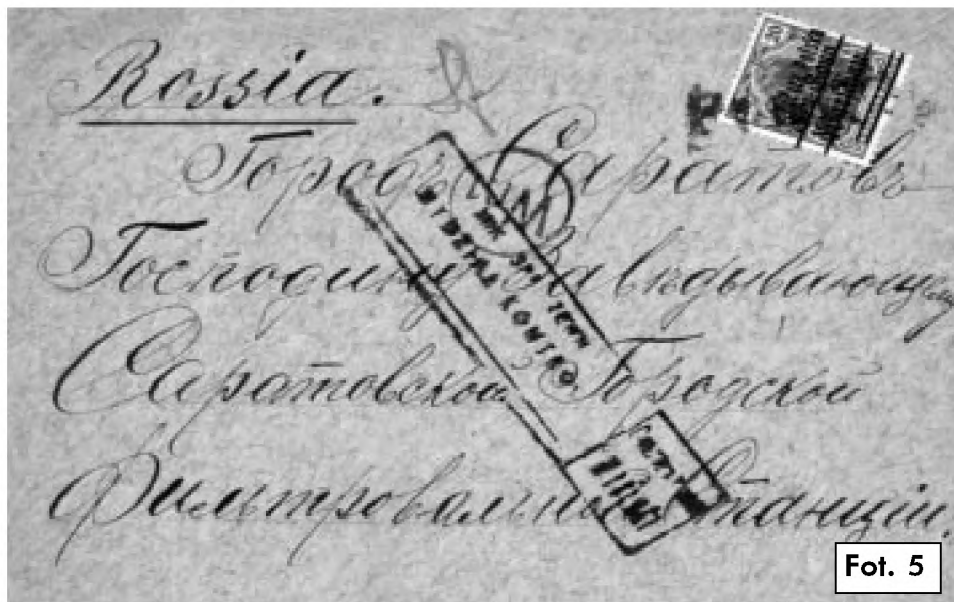 Rossia.
Городъ Саратовъ
Господину Завѣдывающему
Саратовской Городской
Фильтровальной Станціи.
M
30
Fot. 5